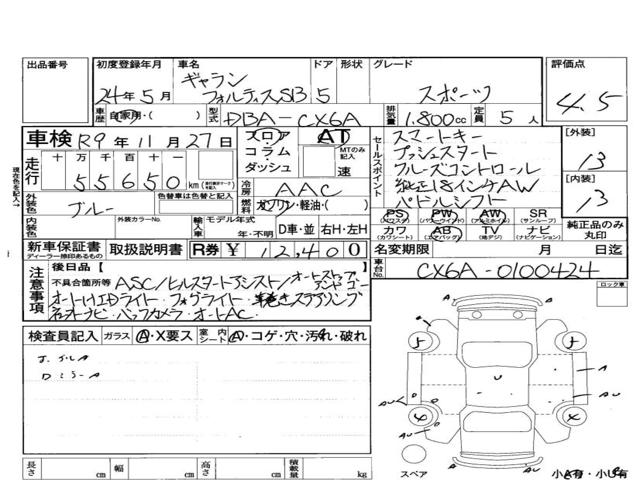 出品番号 初度登録年月 車名 ドア 形状 グレード 評価点
24年5月 ギャラン フォルティスSB 5 スポーツ 4.5
車歴 自家用・( ) 型式 DBA-CX6A 排気量 1.800cc 定員 5人
車検 R9年11月27日 フロア・コラム・ダッシュ AT セールスポイント スマートキー [外装]
走行 十万 万 千 百 十 MTのみ記入 プッシュスタート 13
55650 km 速 クルーズコントロール [内装]
冷房 AAC 純正18インチAW 13
外装色 ブルー 色替車は色替と記入 燃料 ガソリン・軽油( ) パドルシフト
現在色を記入
PS (パワステ) PW (パワーウインド) AW (アルミホイル) SR (サンルーフ) 純正品のみ丸印
内装色 外装カラーNo. 輸入車 モデル年式 年・不明 D車・並 右H・左H カワ (カワシート) AB (エアバック) TV (地デジ) ナビ (ナビゲーション)
新車保証書 ディーラー捺印あるもの 取扱説明書 R券 ¥12,400 名変期限 月 日迄
注意事項 後日品[ ] 車台No. CX6A-0100424
不具合箇所等 ASC/ヒルスタートアシスト/オートストップアンドゴー ロック車
オートHIDライト・フォグライト・革巻きステアリング
社外ナビ・バックカメラ・オートAC・
検査員記入 ガラス A・X要ス 室内シート A・コゲ・穴・汚れ・破れ
5 5
A
U
AU D D AU
4 4
AU D A
長さ cm 幅 cm 高さ cm 積載量 kg スペア 小A有・小U有